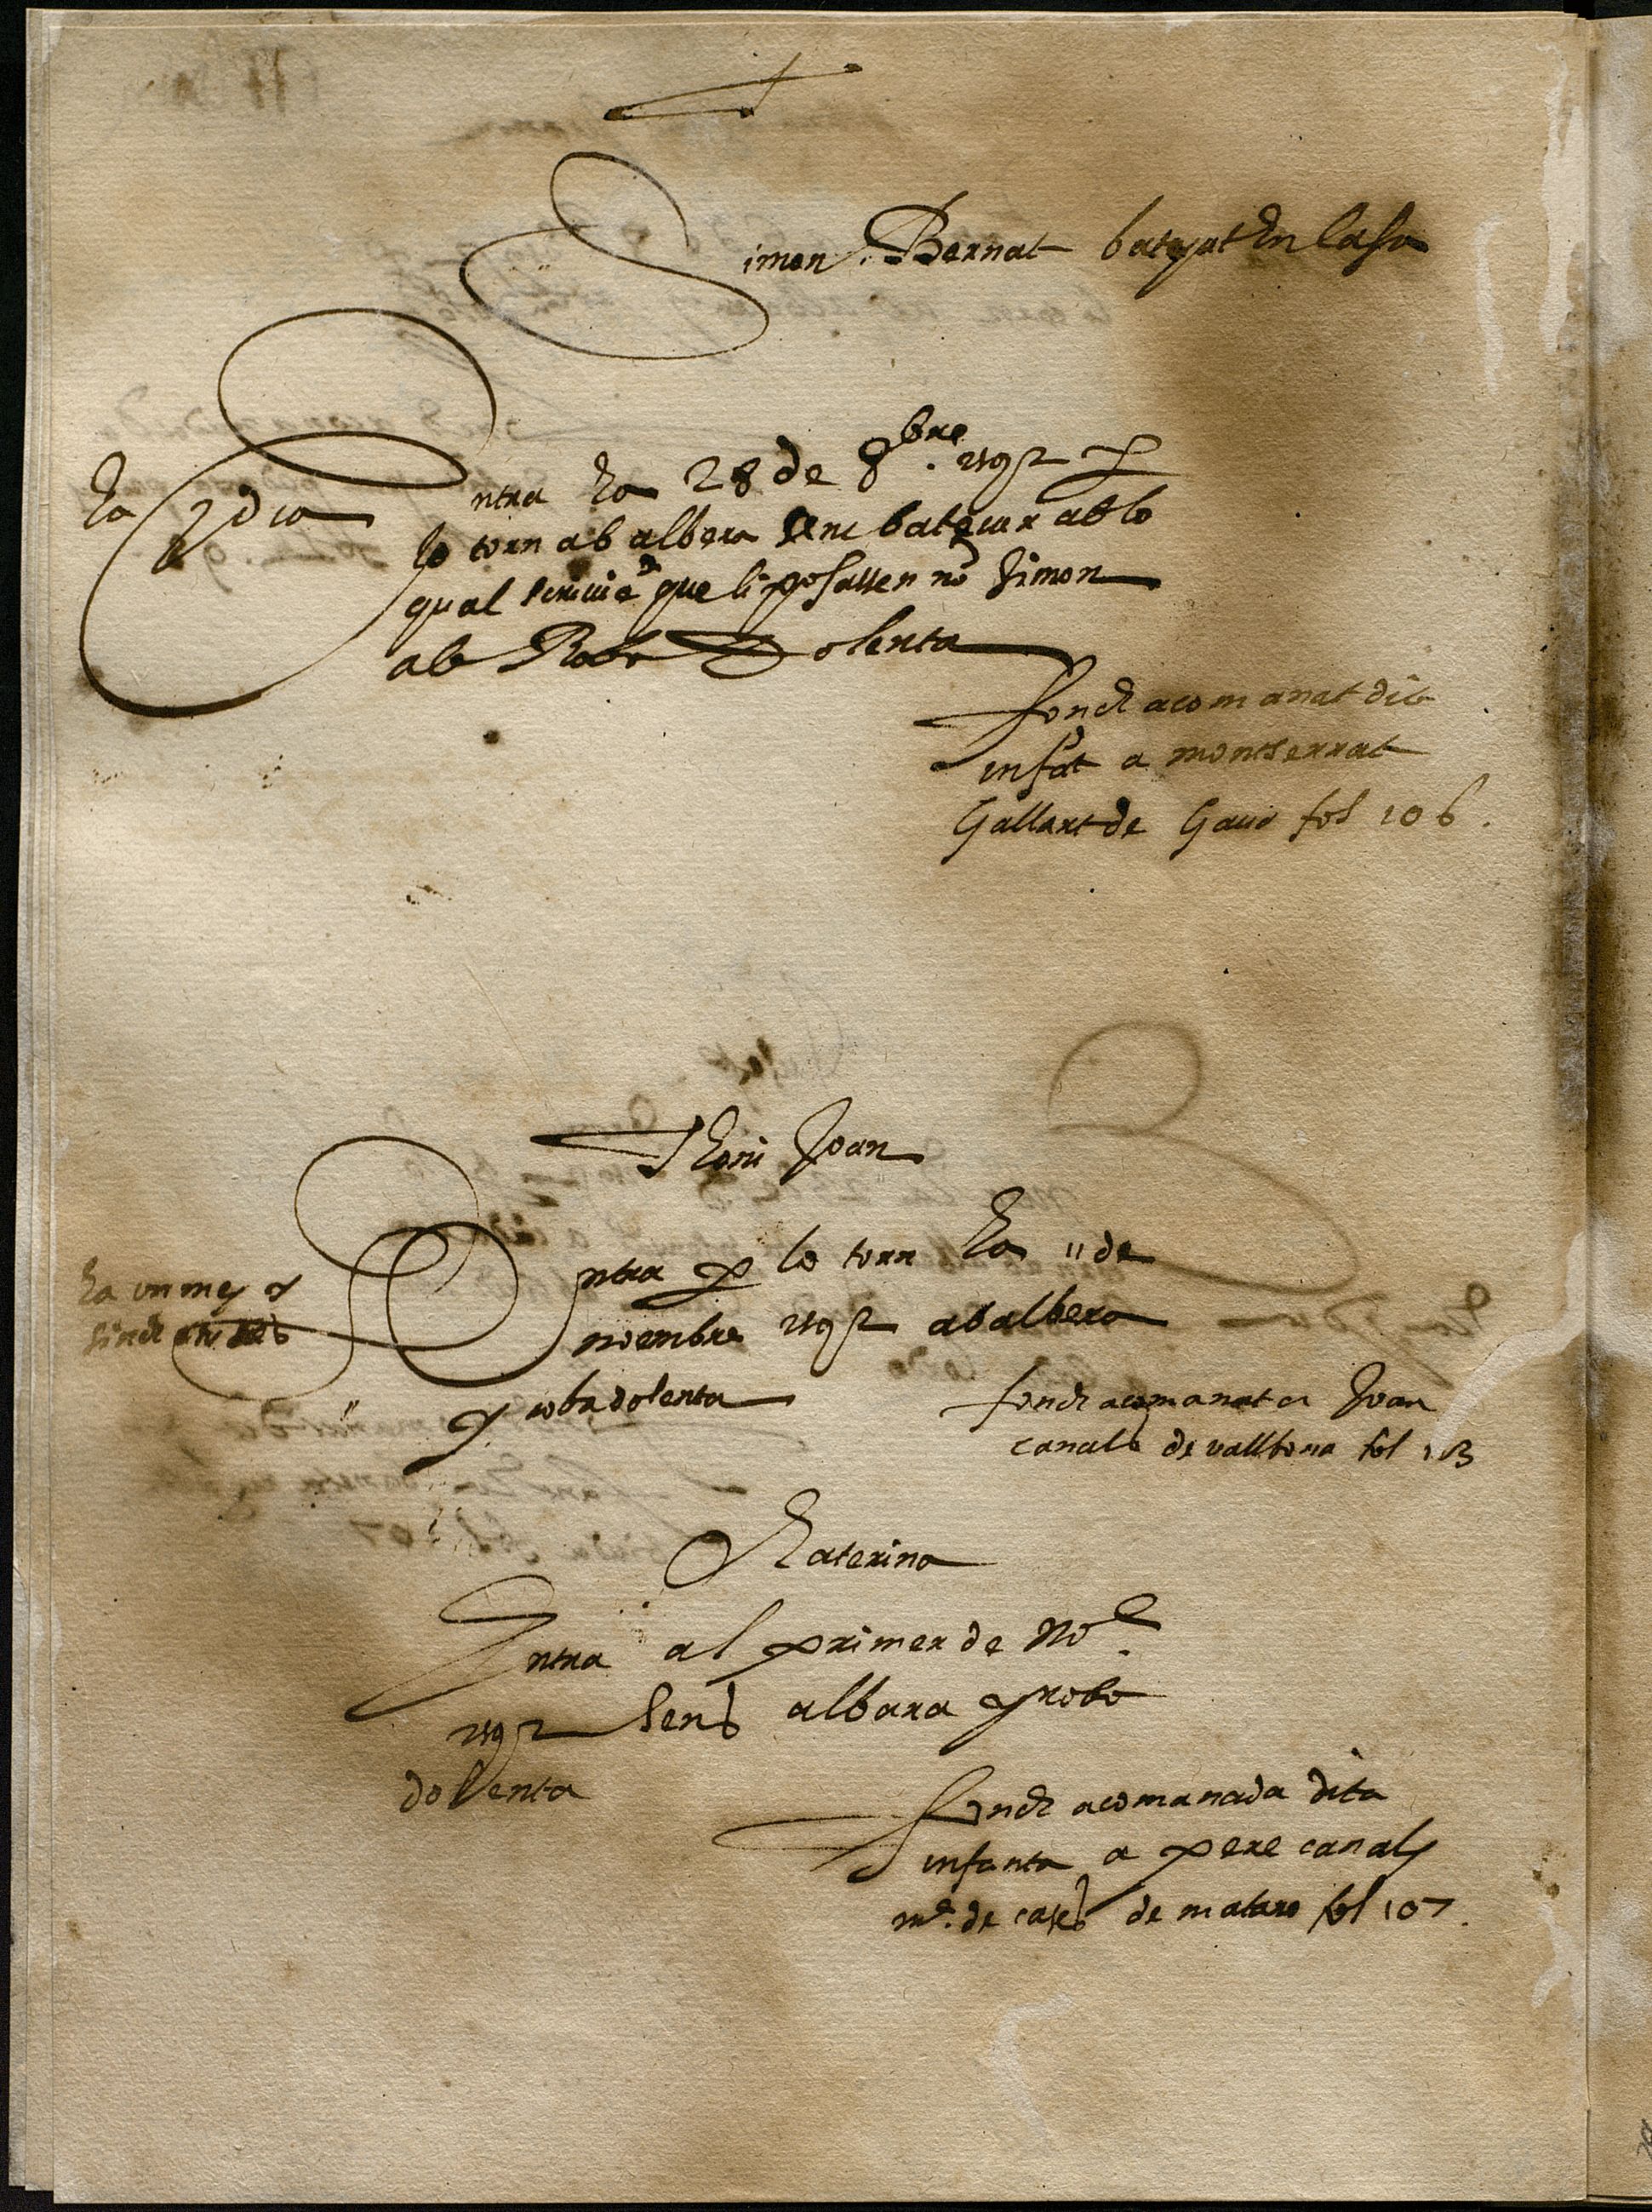 Simon Bernat batejat En casa
Ha 1 dia
Entra ha 28 de 8bre. 1592 p
lo torn ab albera sens batejar ab lo
qual scriuiē que li posassen nō Simon
ab Roba Dolenta
fonch acomanat dit
infāt a montserrat
Gallart de Gaua fol 106.
Joan
Ha un mes y
sinch
Entra p lo torn Ha 11 de
noembre 1592 ab albera
y roba dolenta
fonch acomanat a Joan
canals de vallbona fol 103
Katerina
Entra al primer de noe.
1592 sens albara y robe
dolenta
fonch acomanada dita
infanta a pere canals
me. de cases de mataro fol 107.